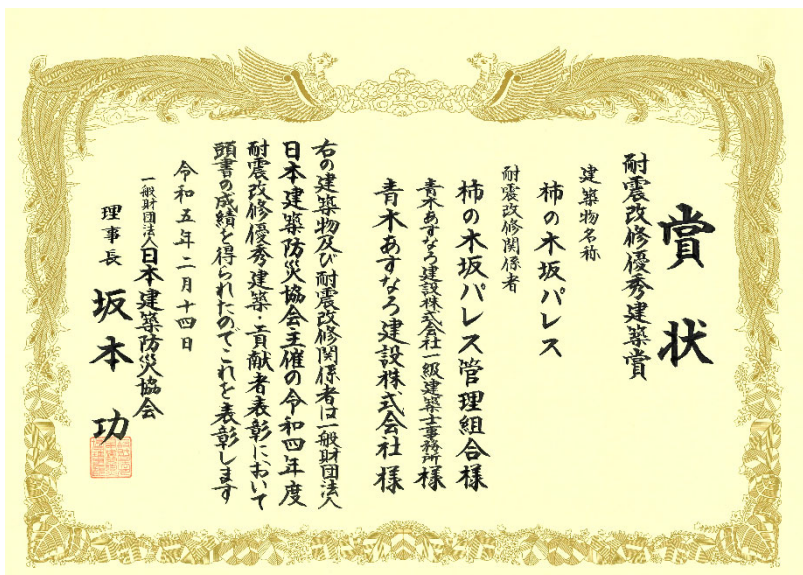 賞状
耐震改修優秀建築賞
建築物名称
柿の木坂パレス
耐震改修関係者
柿の木坂パレス管理組合様
青木あすなろ建設株式会社一級建築士事務所様
青木あすなろ建設株式会社様
右の建築物及び耐震改修関係者は一般財団法人
日本建築防災協会主催の令和四年度
耐震改修優秀建築・貢献者表彰において
頭書の成績を得られたのでこれを表彰します
令和五年二月十四日
一般財団法人日本建築防災協会
理事長 坂本 功